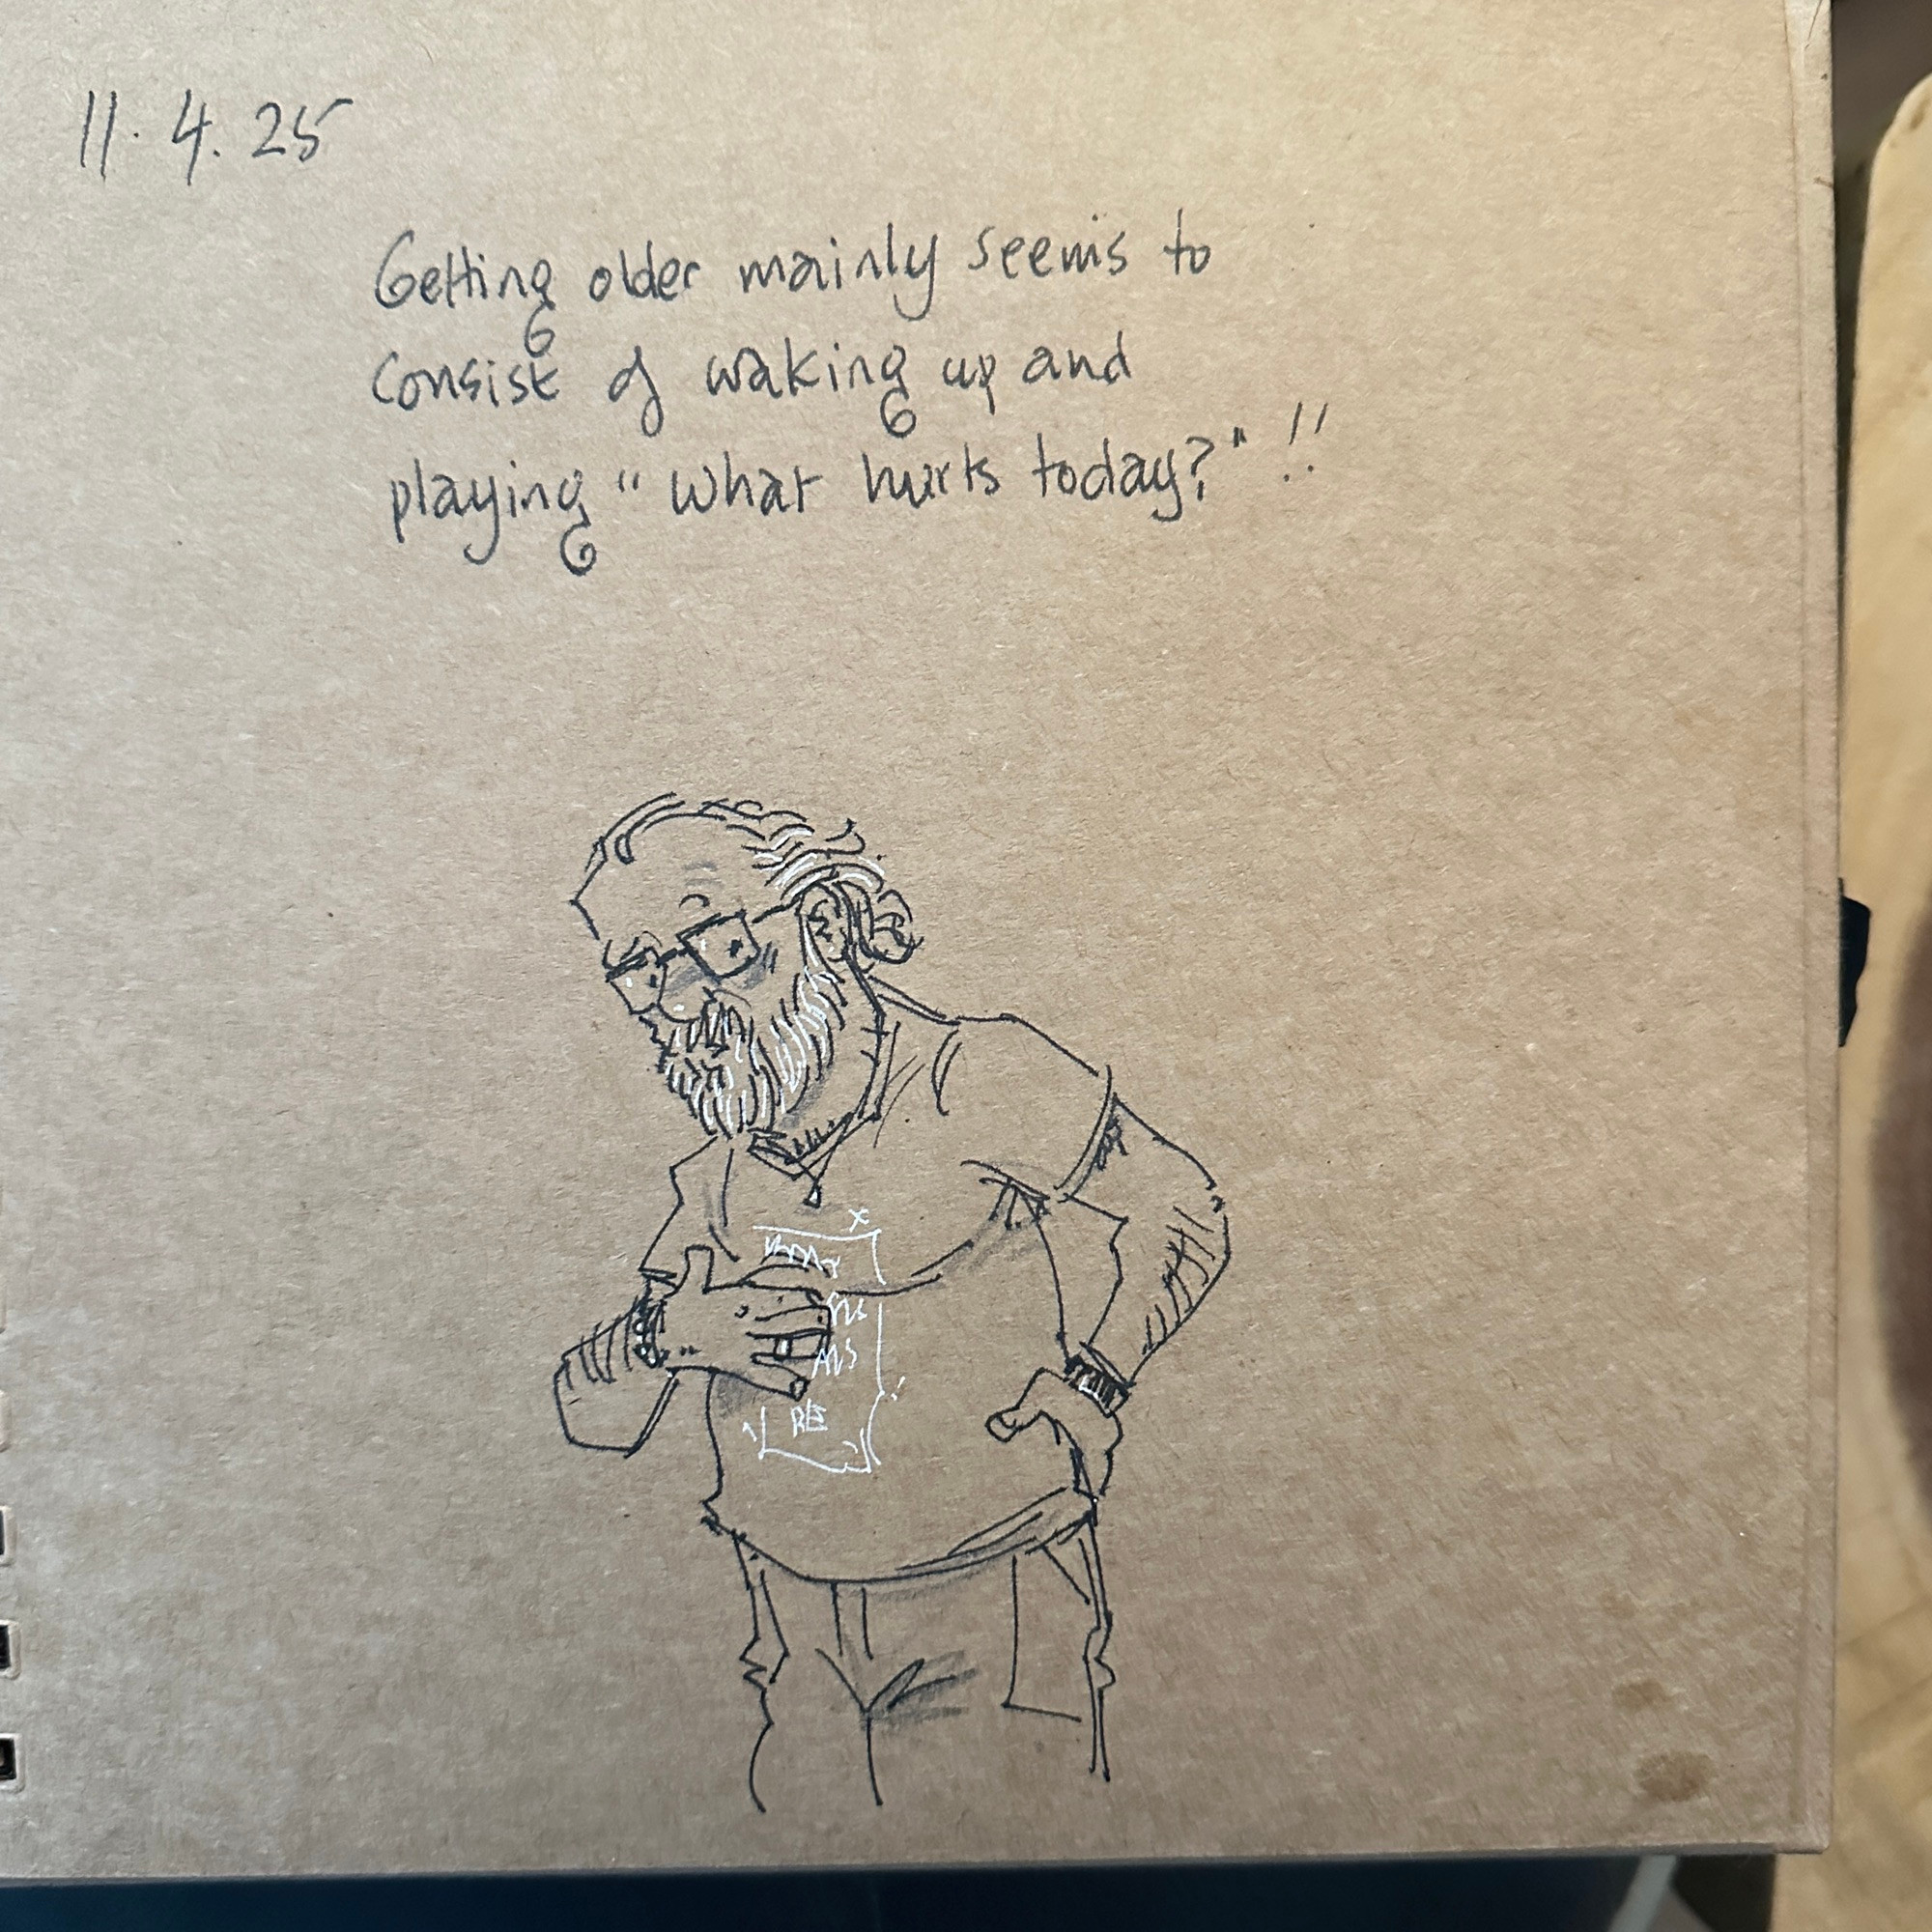 11. 4. 25
Getting older mainly seems to
consist of waking up and
playing "What hurts today?" !!